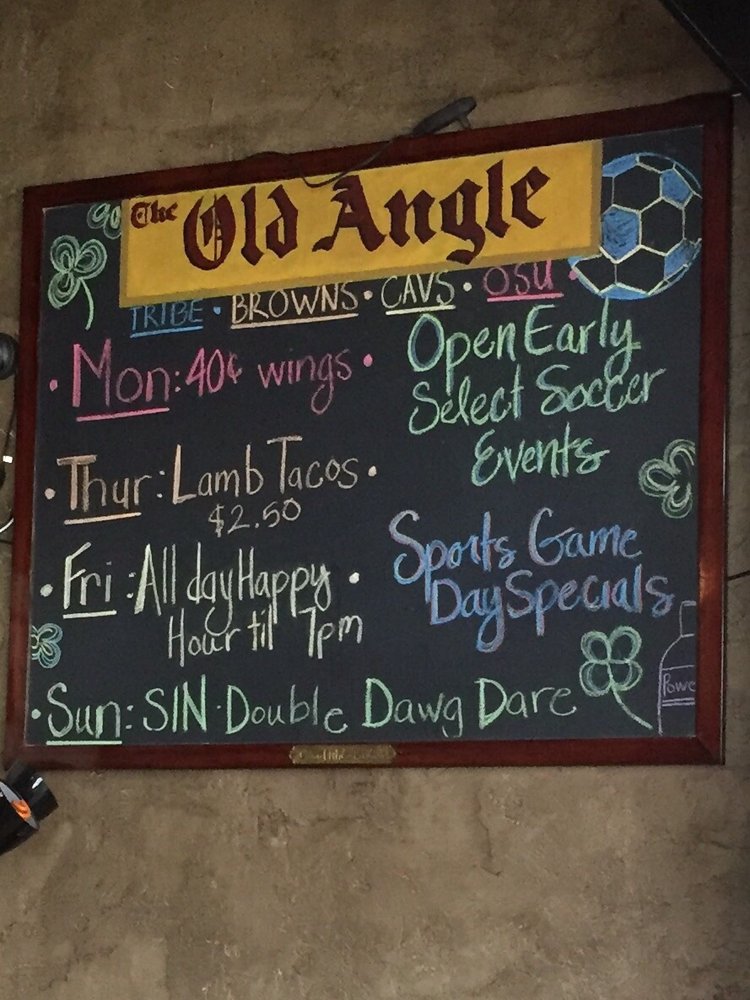 The Old Angle
TRIBE • BROWNS • CAVS • OSU •
• Mon: 40¢ wings •
Open Early
Select Soccer
Events
• Thur: Lamb Tacos •
$2.50
• Fri: All day Happy •
Hour til 7pm
Sports Game
Day Specials
• Sun: SIN • Double Dawg Dare
Powe